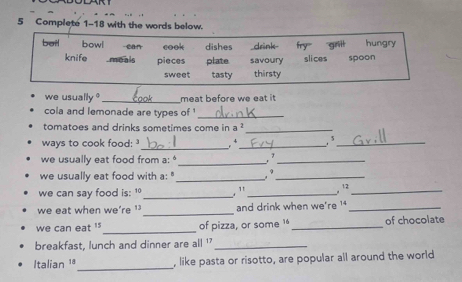 VOCABULARY
5 Complete 1–18 with the words below.
boil bowl can cook dishes drink fry grill hungry
knife meals pieces plate savoury slices spoon
sweet tasty thirsty
• we usually 0 cook meat before we eat it
• cola and lemonade are types of 1 drink
• tomatoes and drinks sometimes come in a 2
• ways to cook food: 3 boil, 4 Fry, 5 Grill
• we usually eat food from a: 6 , 7
• we usually eat food with a: 8 , 9
• we can say food is: 10 , 11 , 12
• we eat when we're 13 and drink when we're 14
• we can eat 15 of pizza, or some 16 of chocolate
• breakfast, lunch and dinner are all 17
• Italian 18 , like pasta or risotto, are popular all around the world